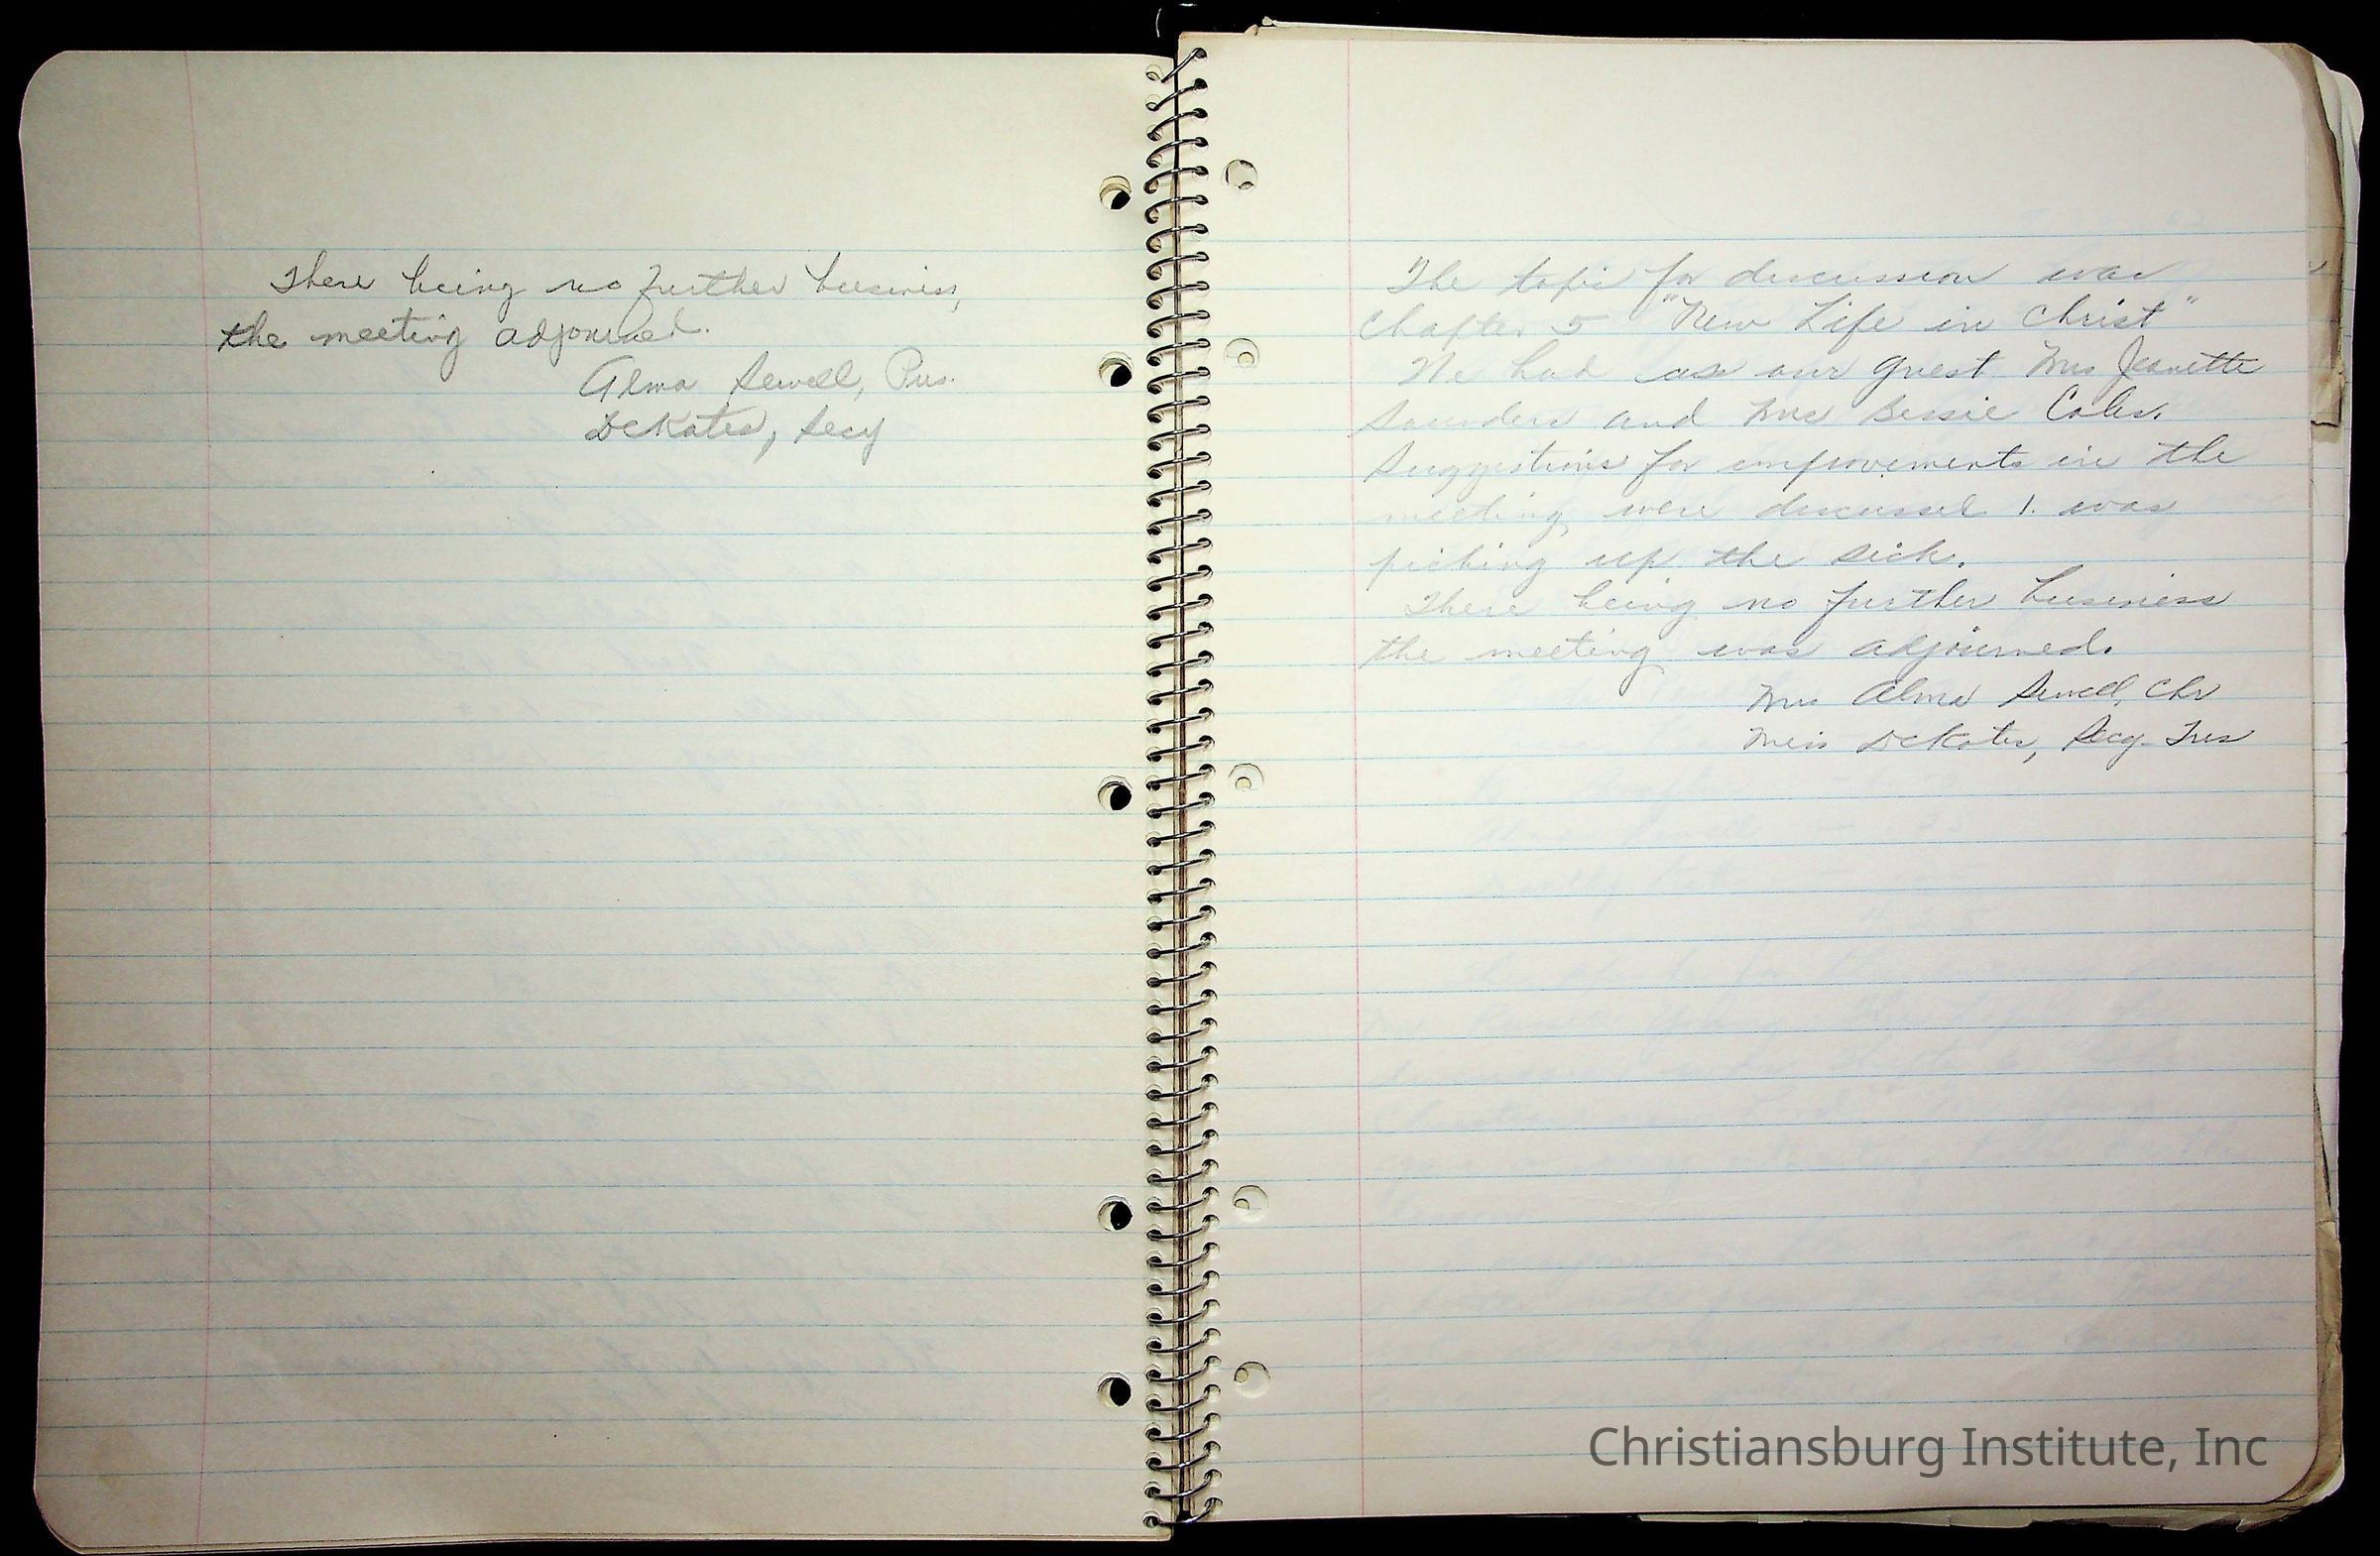 There being no further business,
the meeting adjourned.
Alma Sewell, Pres.
DeKates, Secy
The topic for discussion was
Chapter 5 "New Life in Christ"
We had as our guest Mrs Jeanette
Saunders and Mrs Bessie Coles.
Suggestions for improvements in the
meeting were discussed 1. was
picking up the sick.
There being no further business
the meeting was adjourned.
Mrs Alma Sewell, Chr
Miss DeKates, Secy-Tres
Christiansburg Institute, Inc